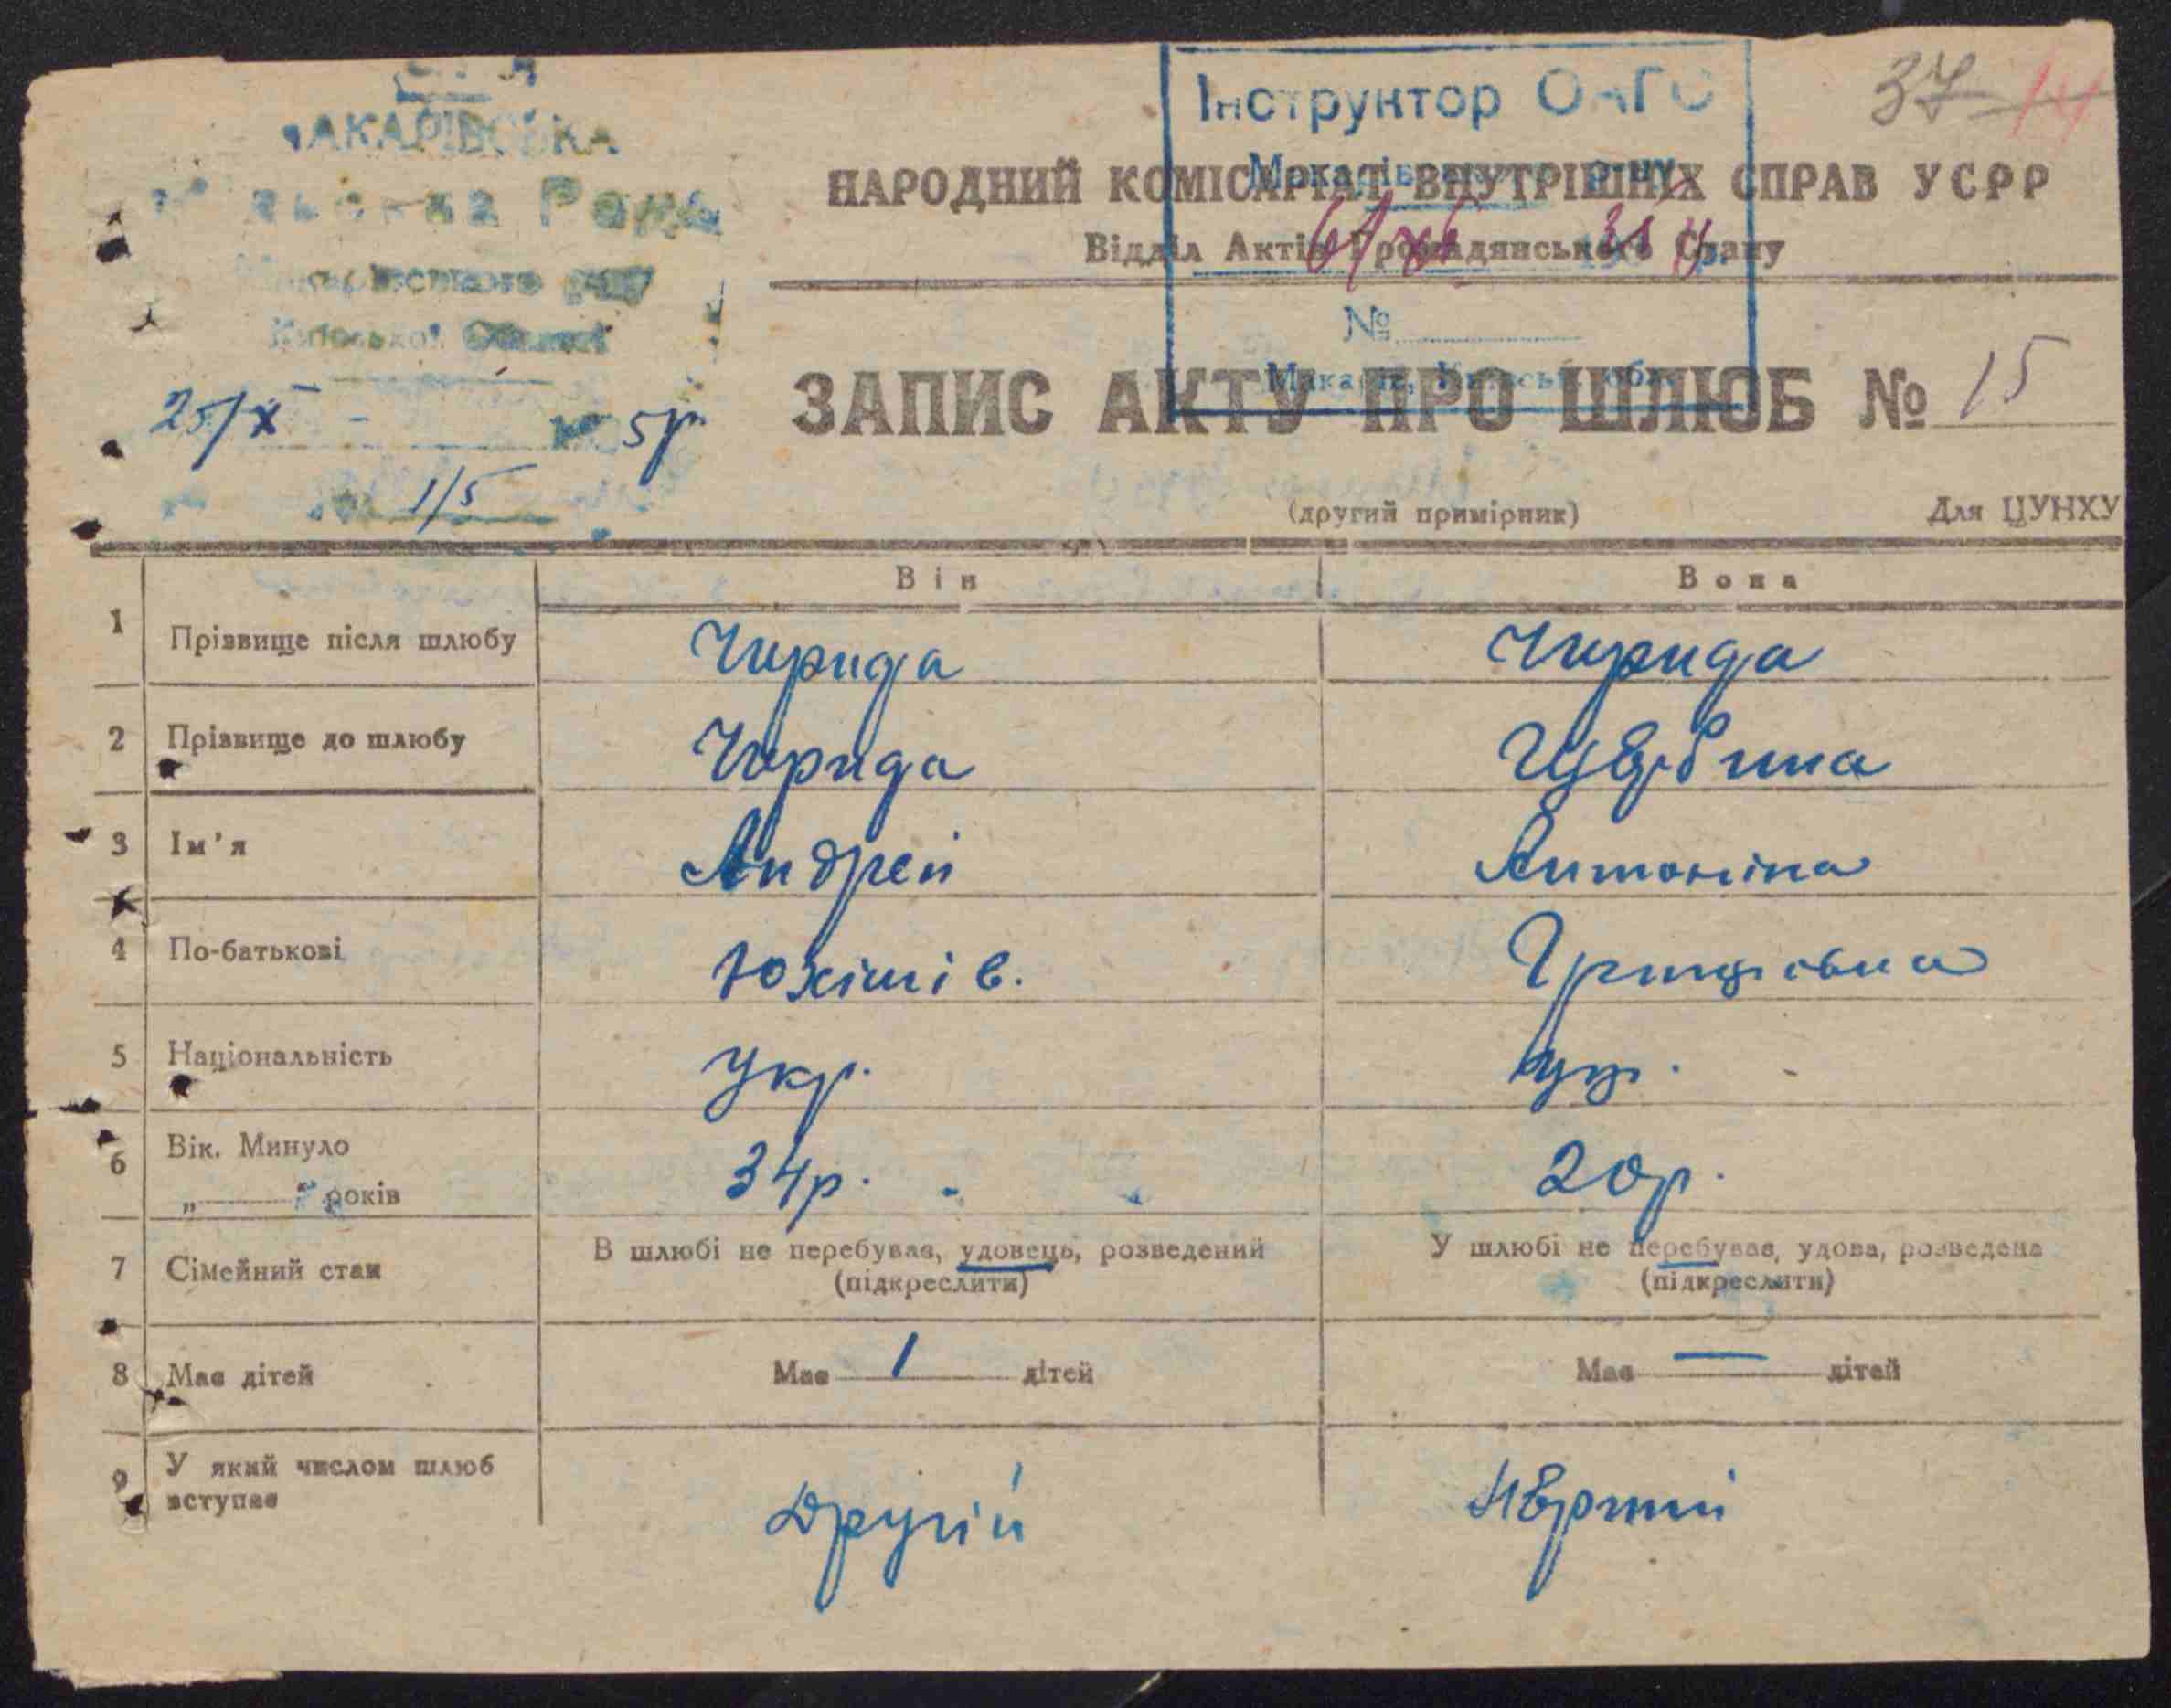 Інструктор ОАГС
37 14
МАКАРІВСЬКА
Рада
НАРОДНИЙ КОМІСАРІАТ ВНУТРІШНІХ СПРАВ УСРР
Відділ Актів Громадянського Стану
Макарівського району
Київської Області
№
25/X 5р.
ЗАПИС АКТУ ПРО ШЛЮБ № 15
Макарів, Київськ. обл.
№ 1/5
(другий примірник) Для ЦУНХУ
Він Вона
1 Прізвище після шлюбу Чирида Чирида
2 Прізвище до шлюбу Чирида
3 Ім'я Андрей Антоніна
4 По-батькові Юхімів. Грицівна
5 Національність Укр. укр.
6 Вік. Минуло 34р. 20р.
„ " років
7 Сімейний стан В шлюбі не перебував, удовець, розведений У шлюбі не перебуває, удова, розведена
(підкреслити) (підкреслити)
8 Має дітей Має 1 дітей Має — дітей
9 У який числом шлюб
вступає Другій Пєрший